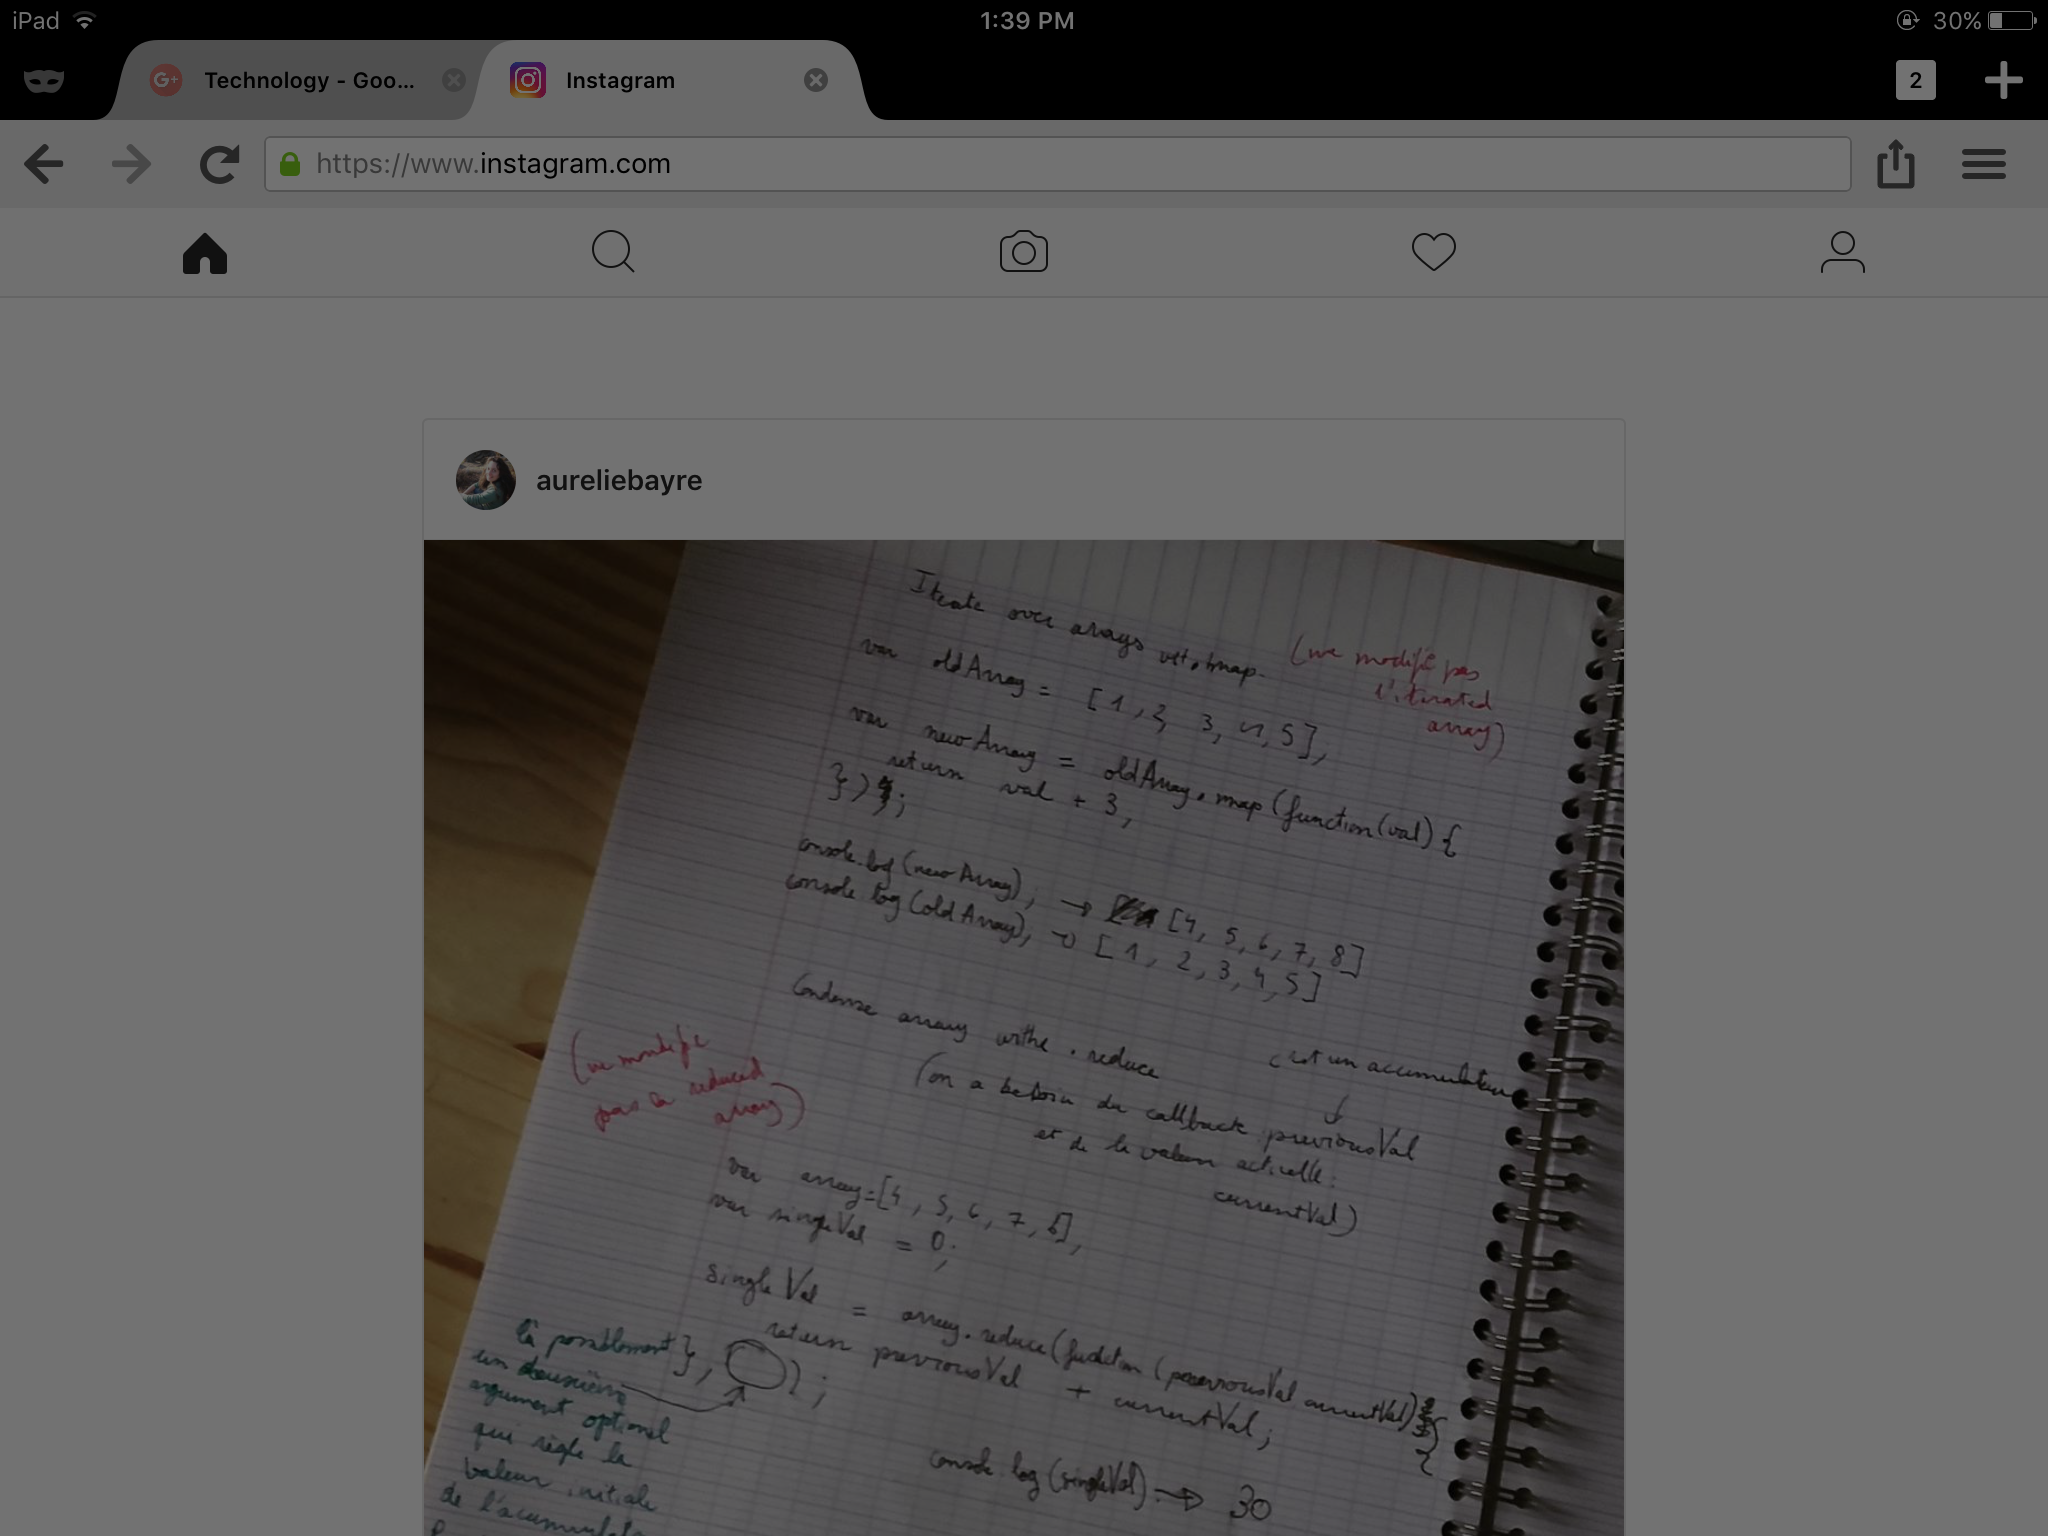 iPad
1:39 PM
30%
Technology - Goo...
Instagram
2
https://www.instagram.com
aureliebayre
Iterate over arrays .map.
(ne modifie pas
l'iterated
array)
var oldArray = [1, 2, 3, 4, 5];
var newArray = oldArray.map(function(val) {
return val + 3;
});
console.log(newArray); → [4, 5, 6, 7, 8]
console log(oldArray); → [1, 2, 3, 4, 5]
Condense array withe .reduce
(ne modifie
pas la reduced
array)
c'est un accumulateur
(on a besoin du callback previousVal
et de la valeur actuelle:
currentVal)
var array=[4, 5, 6, 7, 8];
var singleVal = 0;
singleVal = array.reduce(function (previousVal currentVal) {
return previousVal + currentVal;
}, );
là possiblement
un deuxième
argument optionel
qui règle la
valeur initiale
de l'acumulat
console log(singleVal) → 30